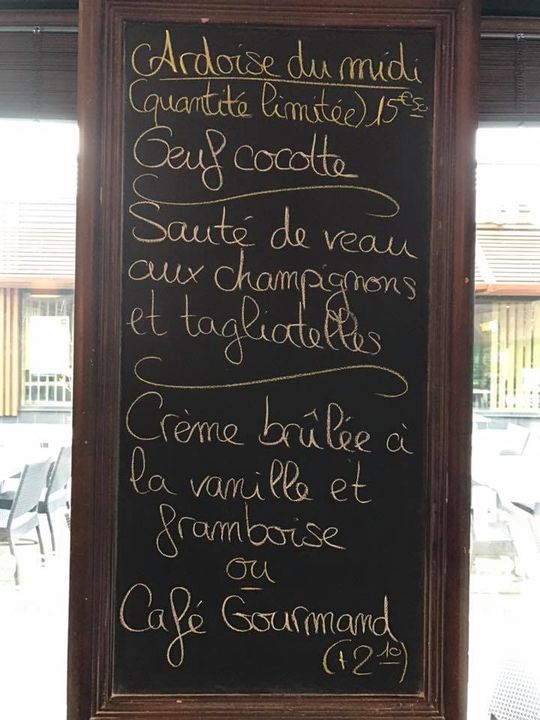 Ardoise du midi
(quantité limitée) 15€50
Oeuf cocotte
Sauté de veau
aux champignons
et tagliatelles
Crème brûlée à
la vanille et
framboise
ou
Café Gourmand
(+2 10)